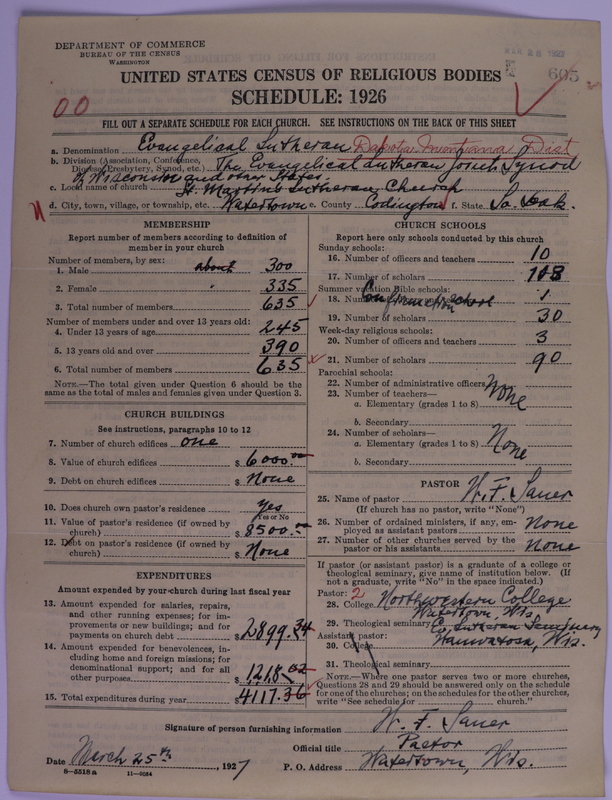 DEPARTMENT OF COMMERCE
BUREAU OF THE CENSUS
WASHINGTON
605
UNITED STATES CENSUS OF RELIGIOUS BODIES
SCHEDULE: 1926
00
FILL OUT A SEPARATE SCHEDULE FOR EACH CHURCH. SEE INSTRUCTIONS ON THE BACK OF THIS SHEET
a. Denomination Evangelical Lutheran Dakota Montana Dist
b. Division (Association, Conference, Diocese, Presbytery, Synod, etc.) The Evangelical Lutheran Joint Synod
of Wisconsin and other States.
c. Local name of church St. Martins Lutheran Church
d. City, town, village, or township, etc. Watertown e. County Codington f. State So. Dak.
MEMBERSHIP
Report number of members according to definition of
member in your church
Number of members, by sex:
1. Male about 300
2. Female " 335
3. Total number of members 635
Number of members under and over 13 years old:
4. Under 13 years of age 245
5. 13 years old and over 390
6. Total number of members 635
NOTE.—The total given under Question 6 should be the
same as the total of males and females given under Question 3.
CHURCH BUILDINGS
See instructions, paragraphs 10 to 12
7. Number of church edifices one
8. Value of church edifices $ 6000.00
9. Debt on church edifices $ None
10. Does church own pastor's residence Yes
Yes or No
11. Value of pastor's residence (if owned by
church) $ 8500.
12. Debt on pastor's residence (if owned by
church) $ None
EXPENDITURES
Amount expended by your church during last fiscal year
13. Amount expended for salaries, repairs,
and other running expenses; for im-
provements or new buildings; and for
payments on church debt $ 2899.34
14. Amount expended for benevolences, in-
cluding home and foreign missions; for
denominational support; and for all
other purposes $ 1218.02
15. Total expenditures during year $ 4117.36
CHURCH SCHOOLS
Report here only schools conducted by this church
Sunday schools:
16. Number of officers and teachers 10
17. Number of scholars 118
Summer vacation Bible schools:
18. Confirmation school 1
19. Number of scholars 30
Week-day religious schools:
20. Number of officers and teachers 3
21. Number of scholars 90
Parochial schools:
22. Number of administrative officers None
23. Number of teachers—
a. Elementary (grades 1 to 8)
b. Secondary
24. Number of scholars—
a. Elementary (grades 1 to 8) None
b. Secondary
PASTOR
25. Name of pastor W. F. Sauer
(If church has no pastor, write "None")
26. Number of ordained ministers, if any, em-
ployed as assistant pastors None
27. Number of other churches served by the
pastor or his assistants None
If pastor (or assistant pastor) is a graduate of a college or
theological seminary, give name of institution below. (If
not a graduate, write "No" in the space indicated.)
Pastor: 2
28. College Northwestern College
Watertown, Wis
29. Theological seminary Ev. Lutheran Seminary
Assistant pastor: Wauwatosa, Wis.
30. College
31. Theological seminary
NOTE.—Where one pastor serves two or more churches,
Questions 28 and 29 should be answered only on the schedule
for one of the churches; on the schedules for the other churches,
write "See schedule for church."
Signature of person furnishing information W. F. Sauer
Official title Pastor
Date March 25th, 1927
P. O. Address Watertown, Wis.
8—5518a 11—9034